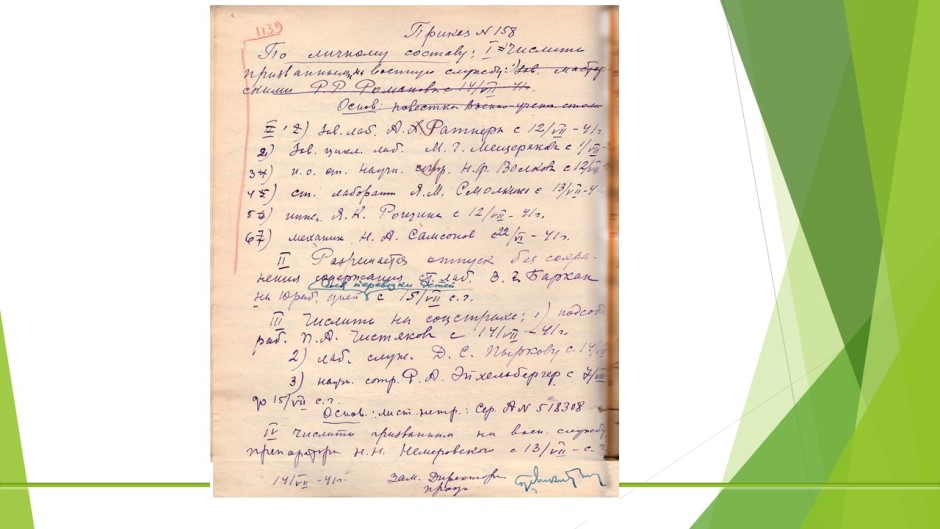 1139
Приказ № 158
По личному составу: I Числить
призванными на военную службу: 1) Зав. мастер
скими Р.Р. Романова с 14/VII - 41г.
Основ: повестка Военно-учетн. стола
I 2) Зав. лаб. А. Ратнера с 12/VII - 41г.
2) Зав. цикл. лаб. М.Г. Мещерякова с /VII-
3) и.о. ст. научн. сотр. Н.Ф. Волкова с 12/VII
4) ст. лаборант А.М. с 13/VII-4
5) инж. Я.К. с 12/VII - 41г.
6) механик Н.А. Самсонов с 22/VI - 41г.
II Разрешается отпуск без сохра-
нения содержания ст. лаб. З.Г. Баркан
для перевозки детей
на раб. дней с 15/VII с.г.
III Числить на соцстрахе: 1) подсоб
раб. П.А. Чистякова с 14/VII - 41г.
2) лаб. служ. Д.С. Пыркову с 14/VII
3) научн. сотр. Ф.А. Эйхельбергер с 7/VII
до 15/VII с.г.
Основ.: лист. нетр.: Сер. А № 518308
IV Числить призванным на воен. службу
препаратора Н.Н. Немировского с 13/VII - с.г.
14/VII - 41г. Зам. Директора